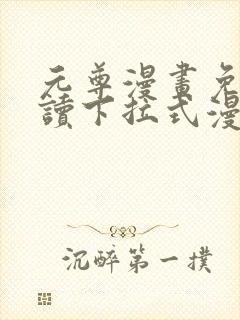 元尊漫畫免
讀下拉式漫
沉醉第一撲